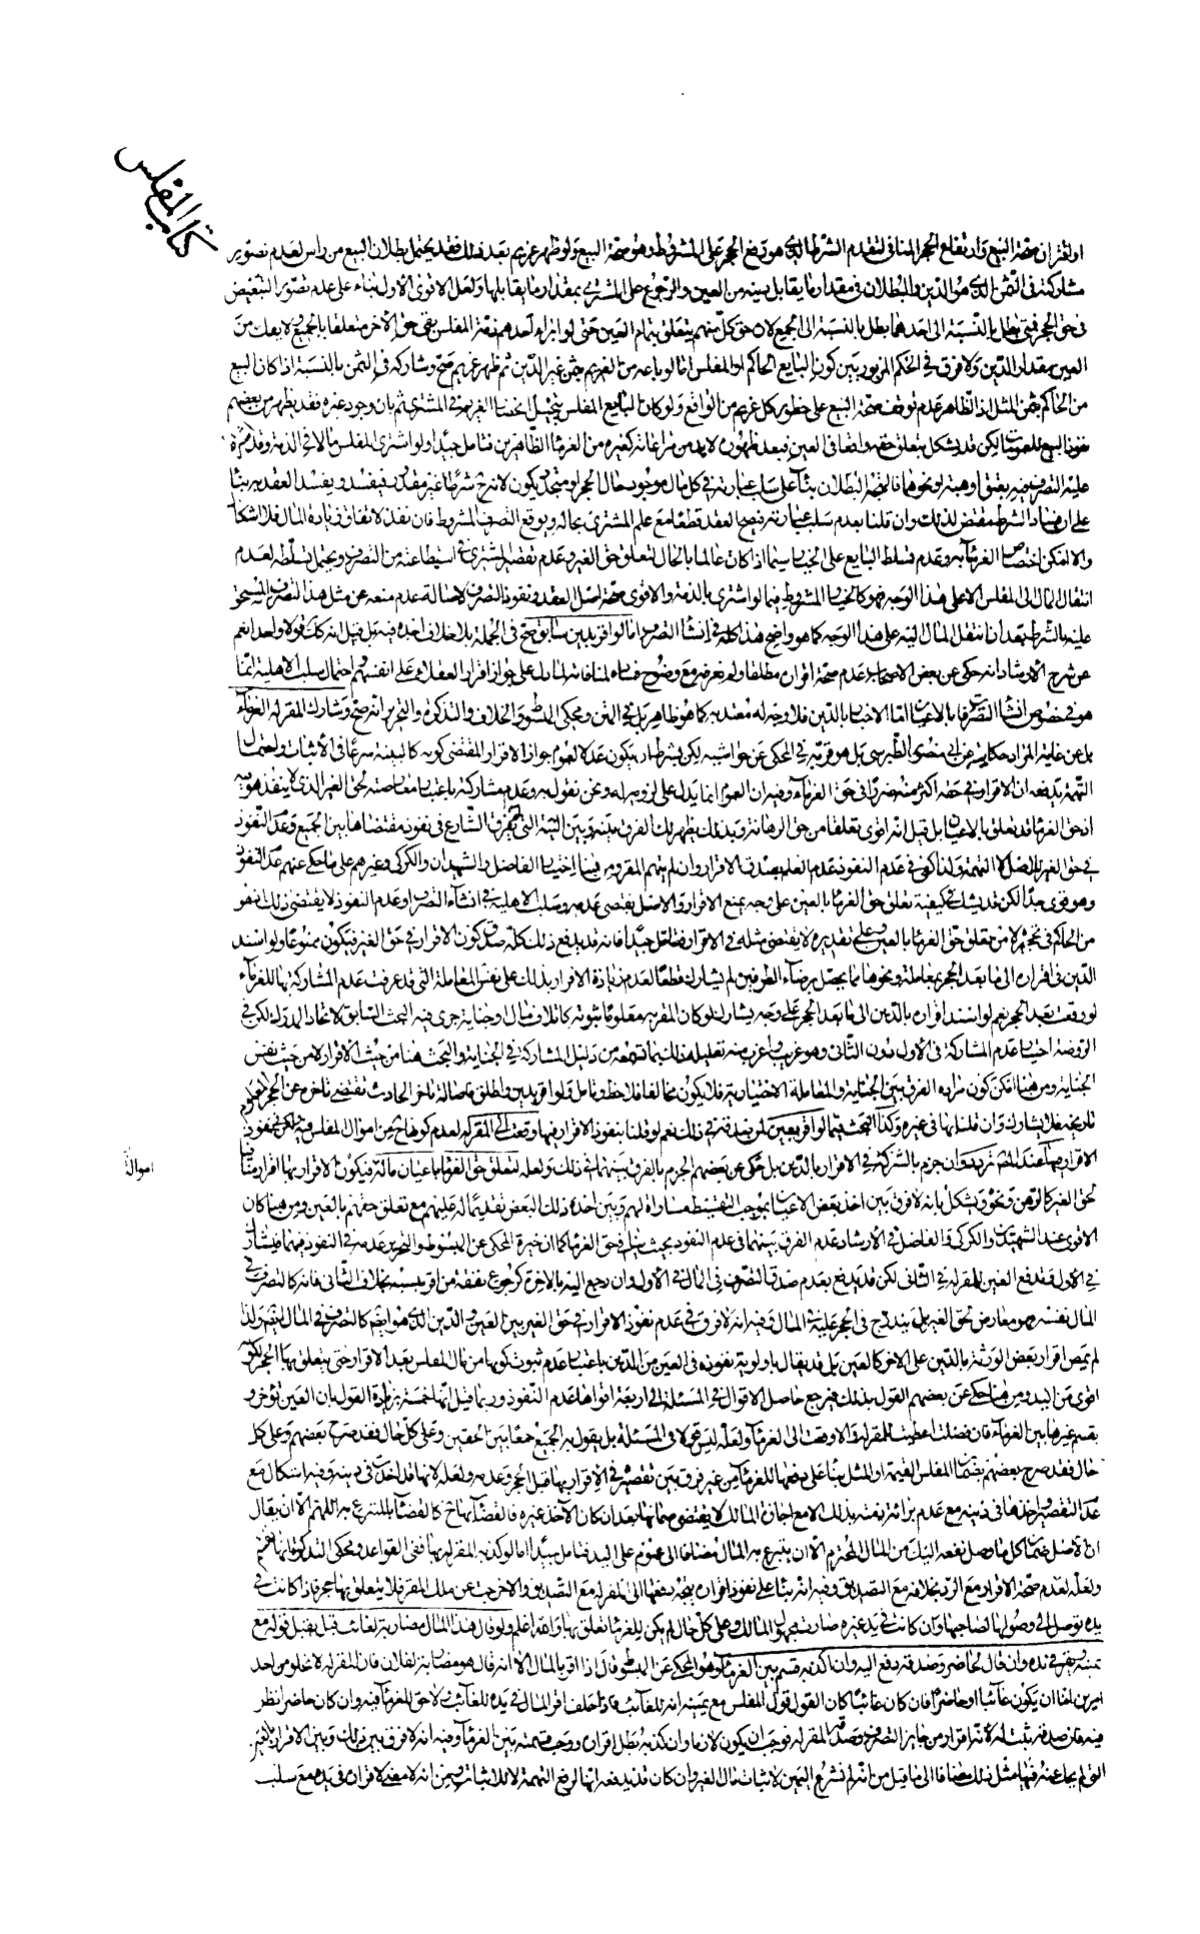 كتاب المفلس
او لاقتران صحة البيع وارتفاع الحجر المنافي لتقدم الشرط الذي هو رفع الحجر على المشروط وهو صحة البيع ولو ظهر غريم بعد ذلك فقد يحتمل بطلان البيع من راس لعدم تصوير
مشاركته في الثمن الذي هو الدين والبطلان في مقدار ما يقابل بينه من العين والرجوع على المشتري بمقدار ما يقابلها ولعل الاقوى الاول بناء على عدم تصور التبعيض
في حق الحجر فمتى بطل بالنسبة الى احدهما بطل بالنسبة الى الجميع لان حق كل منهم يتعلق بتمام العين حتى لو ابراء احدهم ذمة المفلس بقى حق الاخر متعلقا بالجميع لا يفك من
العين بمقدار الدين ولا فرق في الحكم المزبور بين كون البايع الحاكم او المفلس اما لو باعه من الغريم بثمن غير الدين ثم ظهر غريم صح وشاركه في الثمن بالنسبة اذا كان البيع
من الحاكم بثمن المثل اذ الظاهر عدم توقف صحة البيع على حضور كل غريم من الواقع ولو كان البايع المفلس بتخيل انحصار الغريم في المشتري ثم بان وجود غيره فقد يظهر من بعضهم
نفوذ البيع للعموم لكن قد يشكل بتعلق حقه واقعا في العين فبعد ظهوره لا بد من مراعاته كغيره من الغرماء الظاهرين فتامل جيدا ولو اشترى المفلس مالا في الذمة وقد شرط
عليه التصرف فيه بعتق او هبة او نحوهما فالمتجه البطلان بناء على سلب عبارته في كل مال موجود حال الحجر او متجدد يكون لانه ح شرطا غير مقدور فيفسد ويفسد العقد به بناء
على ان فساد الشرط مقتض لذلك وان قلنا بعدم سلب عبارته فيصح العقد قطعا مع علم المشترى بحاله ويوقع التصرف المشروط فان نفذ لاتفاق زيادة المال فلا اشكال
والا امكن اختصاص الغرماء به وعدم تسلط البايع على الخيار سيما اذا كان عالما بالحال لتعلق حق الغير وعدم تقصير المشترى في استطاعته من التصرف ويحتمل تسلطه لعدم
انتقال المال الى المفلس الا على هذا الوجه فهو كالخيار المشروط فيما لو اشترى بالذمة والاقوى صحة اصل العقد ونفوذ التصرف لاصالة عدم منعه عن مثل هذا التصرف المستحق
عليه بالشرط بعد ان انتقل المال اليه على هذا الوجه كما هو واضح هذا كله في انشاء التصرف اما لو اقر بدين سابق صح في الجملة بلا خلاف اجده فيه بل قيل انه كك قولا واحدا نعم
عن شرح الارشاد انه حكى عن بعض الاصحاب عدم صحة اقراره مطلقا ولم نعرفه مع وضوح فساده لمنافاته لما دل على جواز اقرار العقلاء على انفسهم واحتمال سلب الاهلية انما
هو في خصوص انشاء التصرف بالاعيان اما الاخبار بالدين فلا وجه له معتد به كما هو ظاهر بل في المتن ومحكى المبسوط والخلاف والتذكرة والتحرير انه صح وشارك المقر له الغرماء
بل عن غاية المراد حكايته عن ابي منصور الطبرسي بل هو قربه في المحكى عن حواشيه لكن بشرط ان يكون عدلا لعموم جواز الاقرار المقتضي كونه كالبينة سيما في الاثبات واحتمال
التهمة يدفعه ان الاقرار في حقه اكثر منه ضررا في حق الغرماء وفيه ان العموم انما يدل على لزومه له ونحن نقول به وعدم مشاركته باعتبار معاصته لحق الغير الذي لا ينفذ هو فيه
اذ حق الغرماء قد تعلق بالاعيان بل قيل انه اقوى تعلقا من حق الرهانة وبذلك يظهر لك الفرق بينه وبين البينة التي لم يفرق الشارع في نفوذ مقتضاها بين الجميع وعدم النفوذ
في حق الغير للاصل لا للتهمة ولذا كفى في عدم النفوذ عدم العلم بصدق الاقرار وان لم يتهم المقر ومن هنا اختار الفاضل والشهيدان والكركي وغيرهم على ما حكى عنهم عدم النفوذ
وهو قوى جدا لكن قد يشك في كيفية تعلق حق الغرماء بالعين على وجه يمنع الاقرار والاصل يقتضي عدمه وسلب الاهلية في انشاء التصرف او عدم النفوذ لا يقتضي ذلك اذ هو
من الحاكم في تحجيره لا من تعلق حق الغرماء بالعين وعلى تقديره لا يقتضي مثله في الاقرار فتامل جيدا فانه قد يدفع ذلك كله صدق كون الاقرار في حق الغير فيكون ممنوعا ولو اسند
الدين في اقراره الى ما بعد الحجر بمعاملة ونحوها مما يحصل برضاء الطرفين لم يشارك قطعا لعدم زيادة الاقرار بذلك على نفس المعاملة التي قد عرفت عدم المشاركة بها للغرماء
لو وقعت بعد الحجر نعم لو اسند اقراره بالدين الى ما بعد الحجر على وجه يشارك لو كان المقر به معلوما ثبوته كاتلاف مال او جناية جرى فيه البحث السابق لاتحاد المدرك لكن في
الروضة اختيار عدم المشاركة في الاول دون الثاني وهو غريب واغرب منه تعليله ذلك بما تسمعه من دليل المشاركة في الجناية والبحث هنا من حيث الاقرار لا من حيث نفس
الجناية ومن هنا امكن كون مراده الفرق بين الجناية والمعاملة الاختيارية فلا يكون مخالفا فلاحظ وتامل ولو اقر بدين واطلق فاصالة تاخر الحادث تقتضي تاخره عن الحجر
تاريخه فلا يشارك وان قلنا بها في غيره وكذا البحث فيما لو اقر بعين لمن تردد في ذلك نعم لو قلنا بنفوذ الاقرار فيها دفعت الى المقر له لعدم كونها ح من اموال المفلس وفي محكى في نفوذ
الاقرار بها عند المصنف تردد وان جزم بالشركة في الاقرار بالدين بل حكى عن بعضهم الجزم بالفرق بينهما في ذلك ولعله لتعلق حق الغرماء باعيان ماله فيكون الاقرار بها اقرارا منافيا
اموالة
لحق الغير كالرهن ونحوه ويشكل بانه لا فرق بين اخذ بعض الاعيان بموجب التقسيط مساواة لهم وبين اخذه ذلك البعض تقديما له عليهم مع تعلق حقهم بالعين ومن هنا كان
الاقوى عند الشهيدين والكركي والفاضل في الارشاد عدم الفرق بينهما في عدم النفوذ بحيث ينافي حق الغرماء كما ان خيرة المحكى عن المبسوط والتحرير عدمه في النفوذ فيهما فيشارك
في الاول وتدفع العين للمقر له في الثاني لكن قد يدفع بعدم صدق التصرف في المال في الاول وان رجع اليه بالاخرة كرجوع نفقة من اقر بنسبه بخلاف الثاني فانه كالتصرف في
المال نفسه وهو معارض لحق الغير بل يندرج في الحجر عليه في المال وفيه انه لا فرق في عدم نفوذ الاقرار في حق الغير بين العين والدين الذي هو ايضا كالتصرف في المال ولذا
لم يمض اقرار بعض الورثة بالدين على الاخر كالعين بل قد يقال باولوية نفوذه في العين من الدين باعتبار عدم ثبوت كونها من مال المفلس بعد الاقرار حتى يتعلق بها الحجر لكنه
اقوى من اليد ومن هنا حكى عن بعضهم القول بذلك فيرجع حاصل الاقوال في المسئلة الى اربعة اقواها عدم النفوذ وربما قيل انها خمسة بزيادة القول بان العين تؤخر و
يقسم غيرها بين الغرماء فان فضلت اعطيت للمقر له والا دفعت الى الغرماء ولعله ليس قولا في المسئلة بل يقول به الجميع جمعا بين الحقين وعلى كل حال فقد صرح بعضهم وعلى كل
حال فقد صرح بعضهم بضمان المفلس القيمة او المثل بناء على دفعها للغرماء من غير فرق بين تقصيره في الاقرار بها قبل الحجر وعدمه ولعله لانها قد اخذت في دينه وفيه اشكال مع
عدم التقصير واخذها في دينه مع عدم براءة ذمته بذلك الا مع اجازة المالك لا يقتضي ضمانها بعد ان كان الآخذ غيره فالقضاء بها ح كالقضاء بالمتبرع به اللهم الا ان يقال
ان الاصل ضمان كل ما وصل نفعه اليك من المال المحترم الا ان يتبرع به المال مضافا الى عموم على اليد فتامل جيدا اما لو كذبه المقر له بها ففي القواعد ومحكى التذكرة انها تقسم
ولعله لعدم صحة الاقرار مع الرد بخلافه مع التصديق وفيه انه بناء على نفوذ اقراره يتجه دفعها الى المقر له مع التصديق والا خرجت عن ملك المقر فلا يتعلق بها حجر فاذا كانت في
يده توصل الى وصولها لصاحبها وان كانت في يد غيره صارت مجهول المالك وعلى كل حال لم يكن للغرماء تعلق بها والله اعلم ولو قال هذا المال مضاربة لغائب قيل يقبل قوله مع
يمينه ويقر في يده وان قال لحاضر وصدقه دفع اليه وان كذبه قسم بين الغرماء وهو المحكى عن المبسوط قال اذا اقر بالمال الا انه قال هو مضاربة لفلان فان المقر له لا يخلو من احد
امرين اما ان يكون غائبا او حاضرا فان كان غائبا كان القول قول المفلس مع يمينه انه للغائب فاذا حلف اقر المال في يده للغائب لا حق للغرماء فيه وان كان حاضرا نظر
فيه فان صدقه ثبت له لانه اقرار من جايز التصرف وصدقه المقر له فوجب ان يكون لازما وان كذبه بطل اقراره ووجب قسمته بين الغرماء وفيه انه لا فرق بين ذلك وبين الاقرار بالعين
التي لم يحك عنه فيها مثل ذلك مضافا الى ما قيل من انه لم تشرع اليمين لاثبات مال لغير وان كان قد يدفعه انها لرفع التهمة لا للاثبات ومن انه لا معنى لاقراره في يده مع سلب